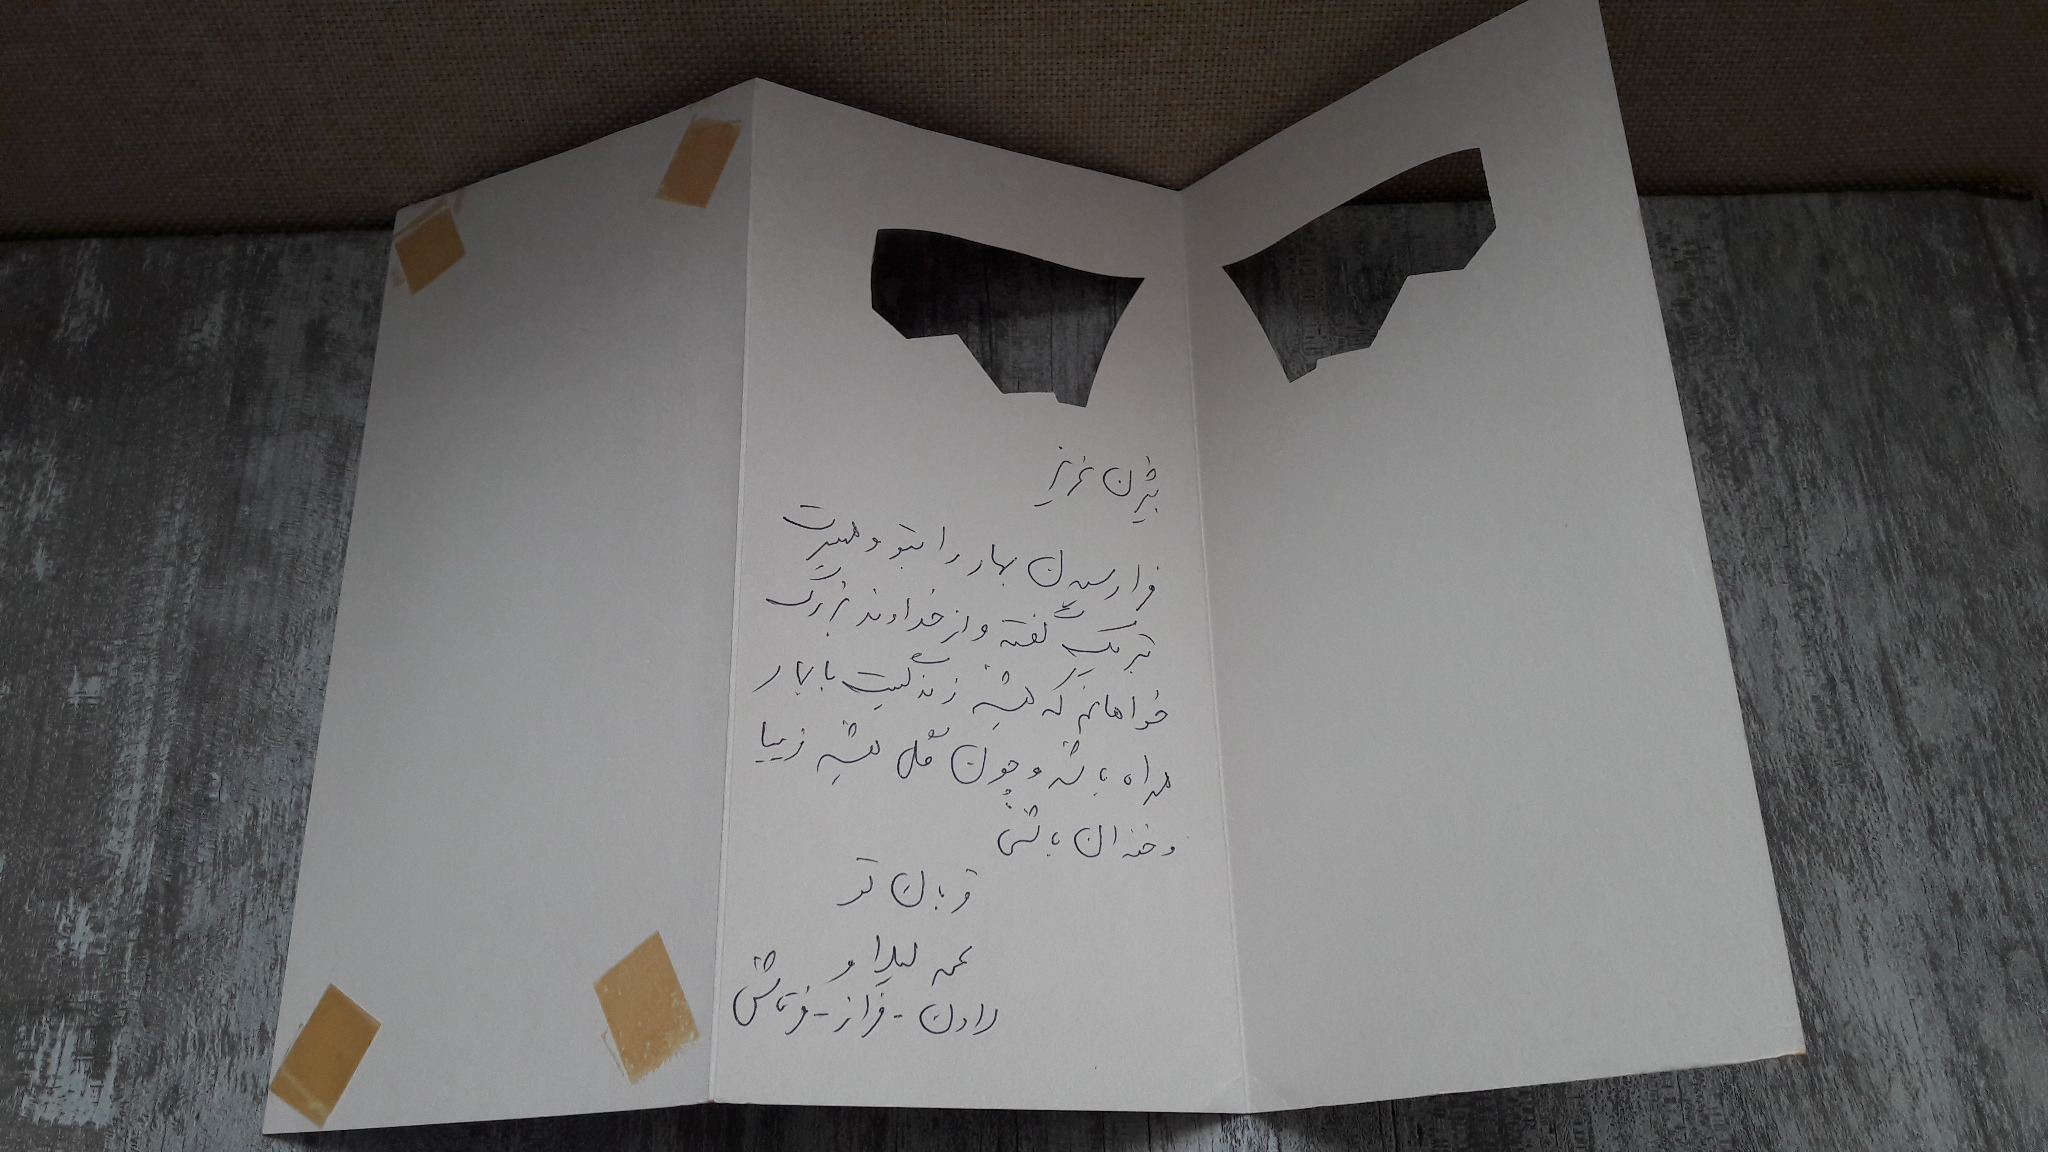 بیژن عزیز
فرا رسیدن بهار را بتو و همسرت
تبریک گفته و از خداوند بزرگ
خواهانم که همیشه زندگیت با بهار
همراه باشد و چون گل همیشه زیبا
و خندان باشی
قربان تو
عمه لیدا و
رادن - فراز -